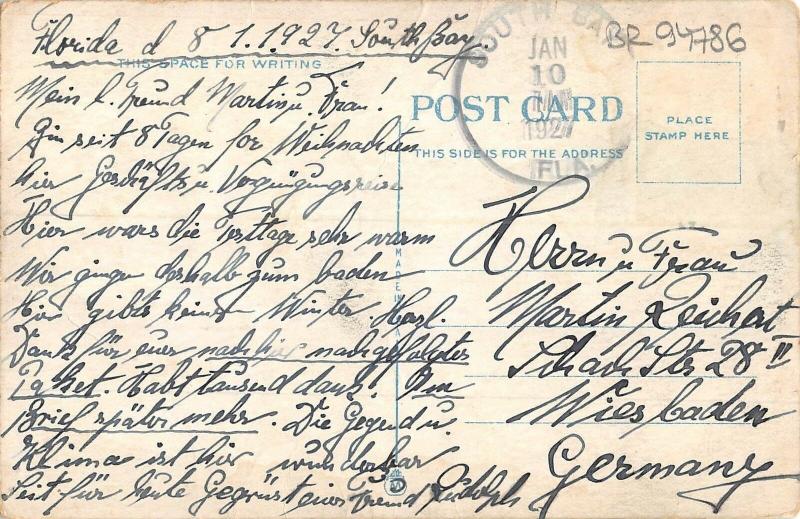 Florida d 8 1.1.1927. South Bay.
BR 94786
SOUTH BAY
JAN
10
192
FLA
THIS SPACE FOR WRITING
POST CARD
THIS SIDE IS FOR THE ADDRESS
PLACE
STAMP HERE
MADE IN
Mein l. Freund Martin u. Frau!
Bin seit 8 Tagen for Weihnachten
hier Geschäfts u. Vergnügungsreise
Hier wars die Festtage sehr warm
Wir gingen deshalb zum baden
Hier gibts keinen Winter. Herzl.
Dank für euer nach hier nachgefolgter
Paket. Habt tausend dank! Im
Brief später mehr. Die Gegend u.
Klima ist hier wunderbar
Seit für heute Gegrüst euer Freund Rudolph
Herrn u Frau
Martin Reichert
Schach Str 28 II
Wiesbaden
Germany